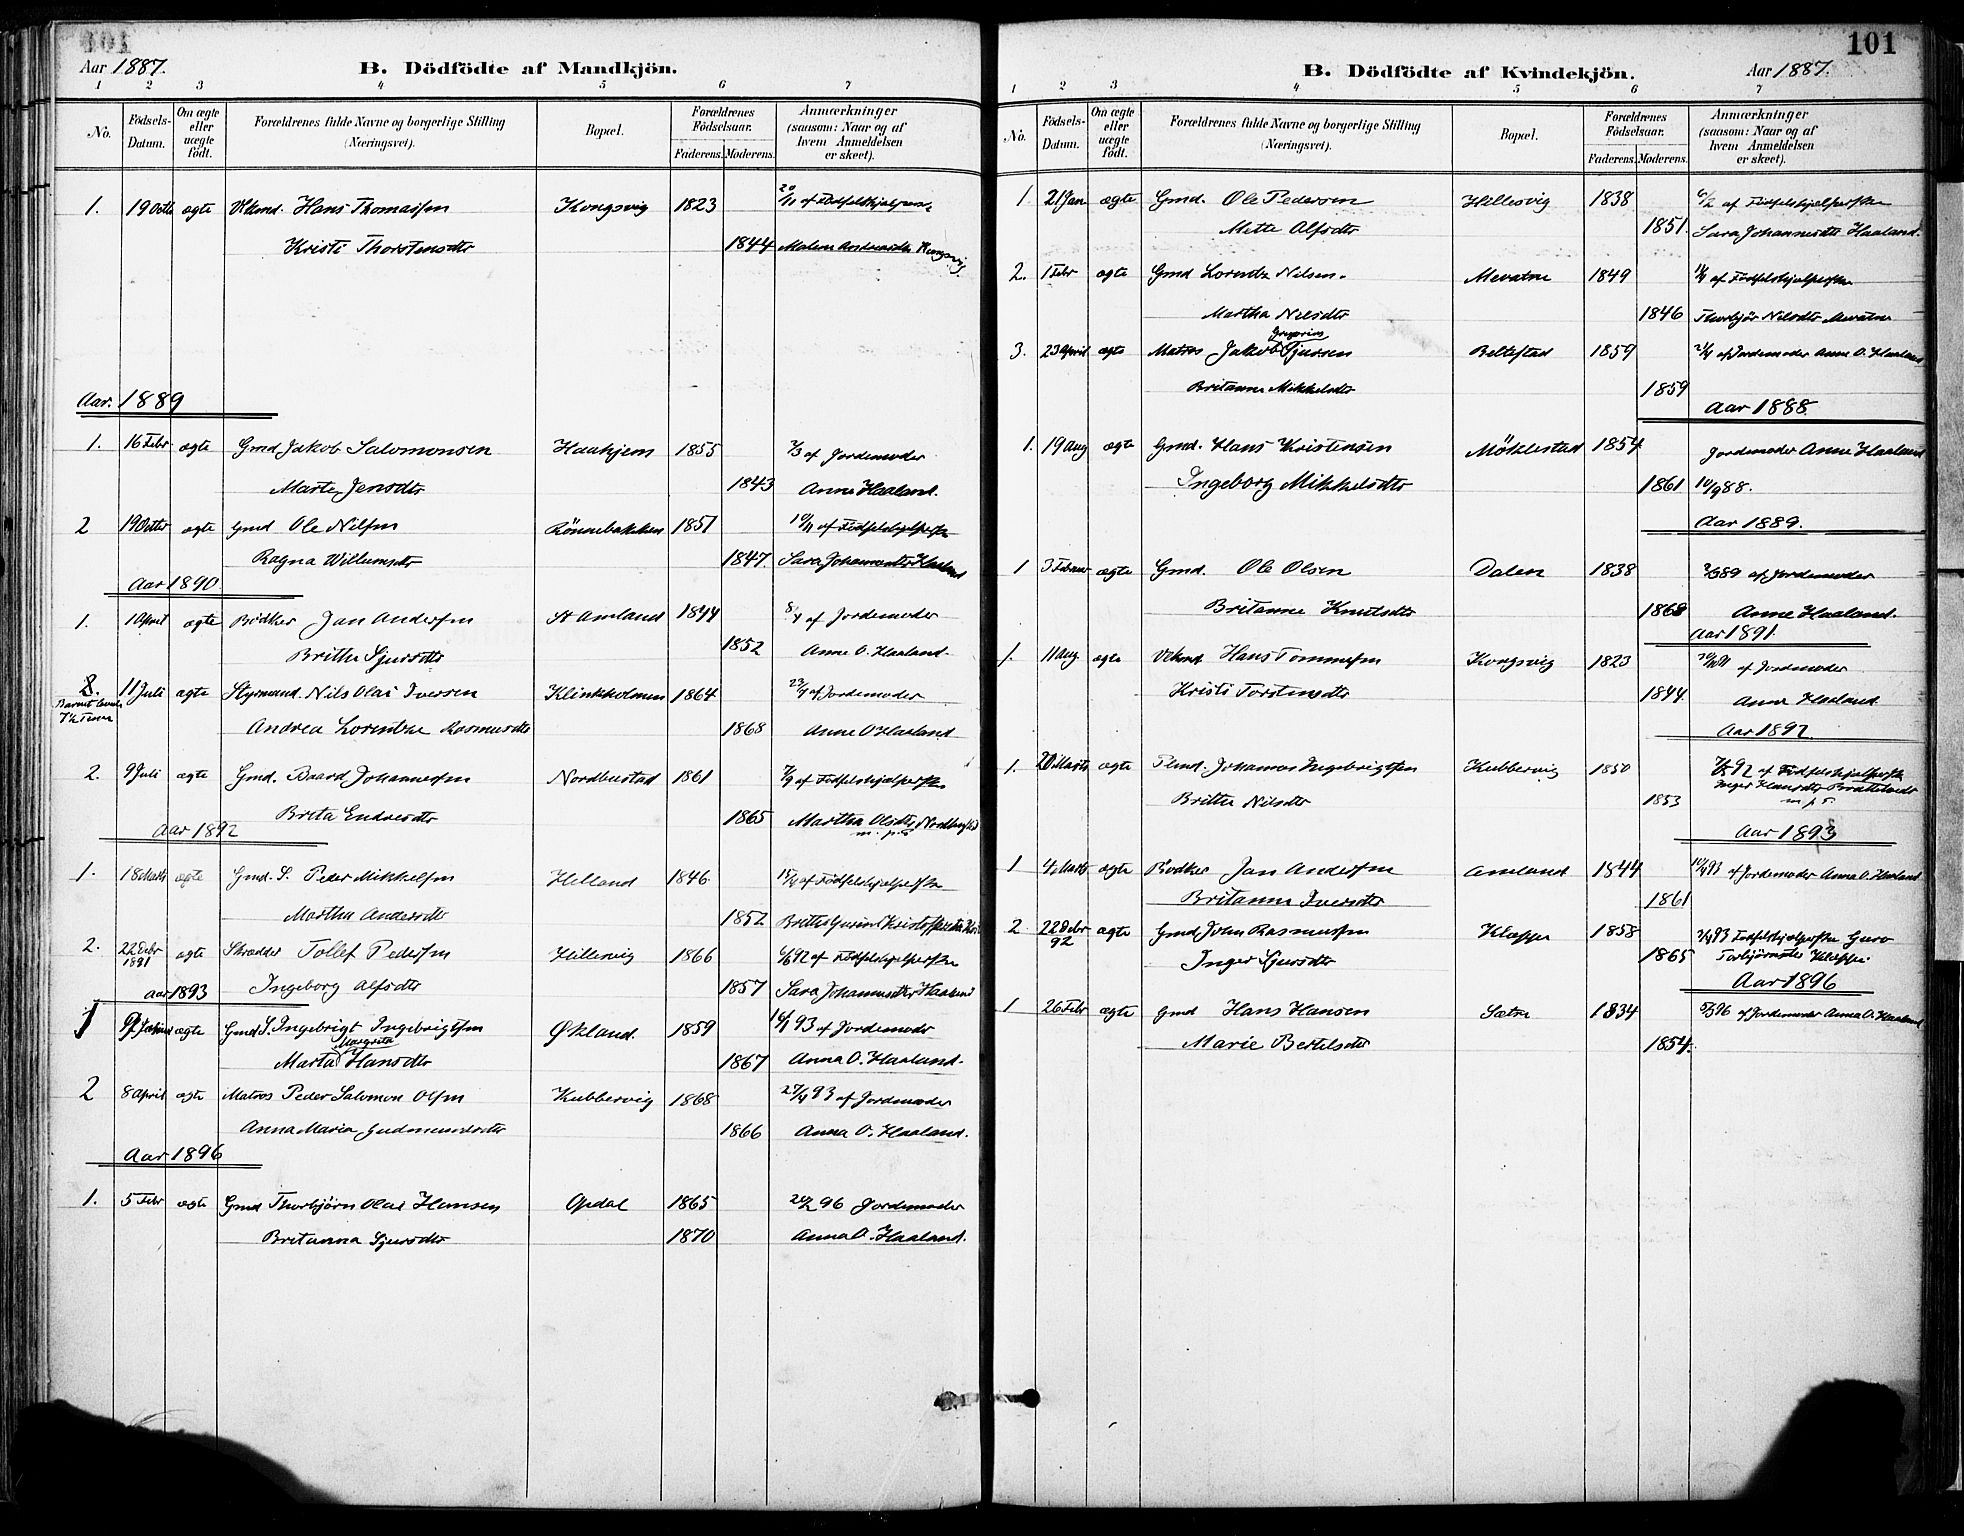 101
Aar 1887.
B. Dödfödte af Mandkjön.
1 2 3 4 5 6 7
No. Födsels-Datum. Om ægte eller uægte födt. Forældrenes fulde Navne og borgerlige Stilling (Næringsvei). Bopæl. Forældrenes Födselsaar. Faderens. Moderens. Anmærkninger (saasom: Naar og af hvem Anmeldelsen er skeet).
1. 19 Octb ægte Hans Thomassen Kongsvig 1823 20/11 af Födselshjælperske
Kristi Thorstensdtr 1844 Malene Kongsvig
Aar. 1889
1. 16 Febr ægte Gmd Jakob Salomonsen Haukjem 1855 7/3 af Jordemoder
Marte Jensdtr 1843 Anne Haaland.
2 19 Octbr ægte Gmd Ole Nilsen Rönnebakken 1851 10/11 af Födselshjælperske
Ragna Willumsdtr 1847. Sara Johannesdtr Haaland
Aar 1890
1. 1 April ægte Bödker Jan Andersen St Amland 1844 8/4 af Jordemoder
Britha Sjursdtr 1852 Anne O. Haaland.
11 Juli ægte Styrmand Nils Olai Iversen Klinkholmen 1864 af Jordemoder
Barnet levede 7½ Time
Andrea Lorentze Rasmusdtr 1868 Anne O Haaland
2. 9 Juli ægte Gmd. Baard Johannessen Nordbustad 1861 7/9 af Födselshjælperske
Brita Endresdtr 1865 Martha Olsdtr Nordbustad
Aar 1892
1. 18 Marts ægte Gmd. S. Peder Mikkelsen Helland 1846 15/4 af Födselshjælperske
Martha Andersdtr 1852
2. 22 Debr 1891 ægte Skrædder Tollef Pedersen Hillesvig 1866 af Födselshjælperske
Ingeborg Alfsdtr 1857 Sara Johannesdtr Haaland
Aar 1893
1 ægte Gmd S. Ingebrigt Ingebrigtsen Økland. 1859 93 af Jordemoder
Margrita
Marta Hansdtr 1867 Anna O. Haaland.
2 8 April ægte Matros Peder Salomon Olsen Kubbervig 1868 27/4 93 af Jordemoder
Anna Maria Gudmundsdtr 1866 Anna O. Haaland.
Aar 1896
1. 5 Febr ægte Gmd Thorbjörn Olai Hansen Opdal 1865 96 Jordemoder
Britanna Sjursdtr 1870 Anna O. Haaland.
101
B. Dödfödte af Kvindekjön.
Aar 1887.
1 2 3 4 5 6 7
No. Födsels-Datum. Om ægte eller uægte födt. Forældrenes fulde Navne og borgerlige Stilling (Næringsvei). Bopæl. Forældrenes Födselsaar. Faderens. Moderens. Anmærkninger (saasom: Naar og af hvem Anmeldelsen er skeet).
1 21 Jan ægte Gmd. Ole Pedersen Hillesvig 1838 6/2 af Födselshjælperske
Mette Alfsdtr 1851. Sara Johannesdtr Haaland.
2. 1 Febr ægte Gmd Lorentz Nilsen. Mevatne 1849 af Födselshjælperske
Martha Nilsdtr 1846 Thorbjör Nilsdtr Mevatne
Gregorius
3. 23 April ægte Matros Jakob Sjursen Beltestad 1859 af Jordemoder Anne O. Haaland
Britanne Mikkelsdtr 1859
Aar 1888
1. 19 Aug ægte Gmd. Hans Kristensen Möklestad 1854 Jordemoder Anne Haaland
Ingeborg Mikkelsdtr 1861 10/9 88.
Aar 1889.
1 3 Februar ægte Gmd. Ole Olsen Dalen 1838 89 af Jordemoder
Britanne Knutsdtr Anne Haaland.
Aar 1891.
1. 11 Aug ægte Hans Tommesen Kongsvig 1823 af Jordemoder
Kristi Torstensdtr 1844. Anne Haaland
Aar 1892
1. 20 Marts ægte Johannes Ingebrigtsen Kubbervig 1850 92 af Födselshjælperske
Britta Nilsdtr 1853 Inger Hansdtr
Aar 1893
1 4 Marts ægte Bödker Jan Andersen Amland 1844 93 af Jordemoder Anna O. Haaland
Britanna Iversdtr 1861
2 22 Debr 92 ægte Gmd. John Rasmussen Kleppe 1858 93 Födselshjælperske Guro
Inger Sjursdtr 1865 Torbjörnsdtr Kleppe.
Aar 1896
1 26 Febr ægte Gmd Hans Hansen Sætre 1834 96 af Jordemoder Anna O. Haaland
Marie Bertelsdtr 1854.